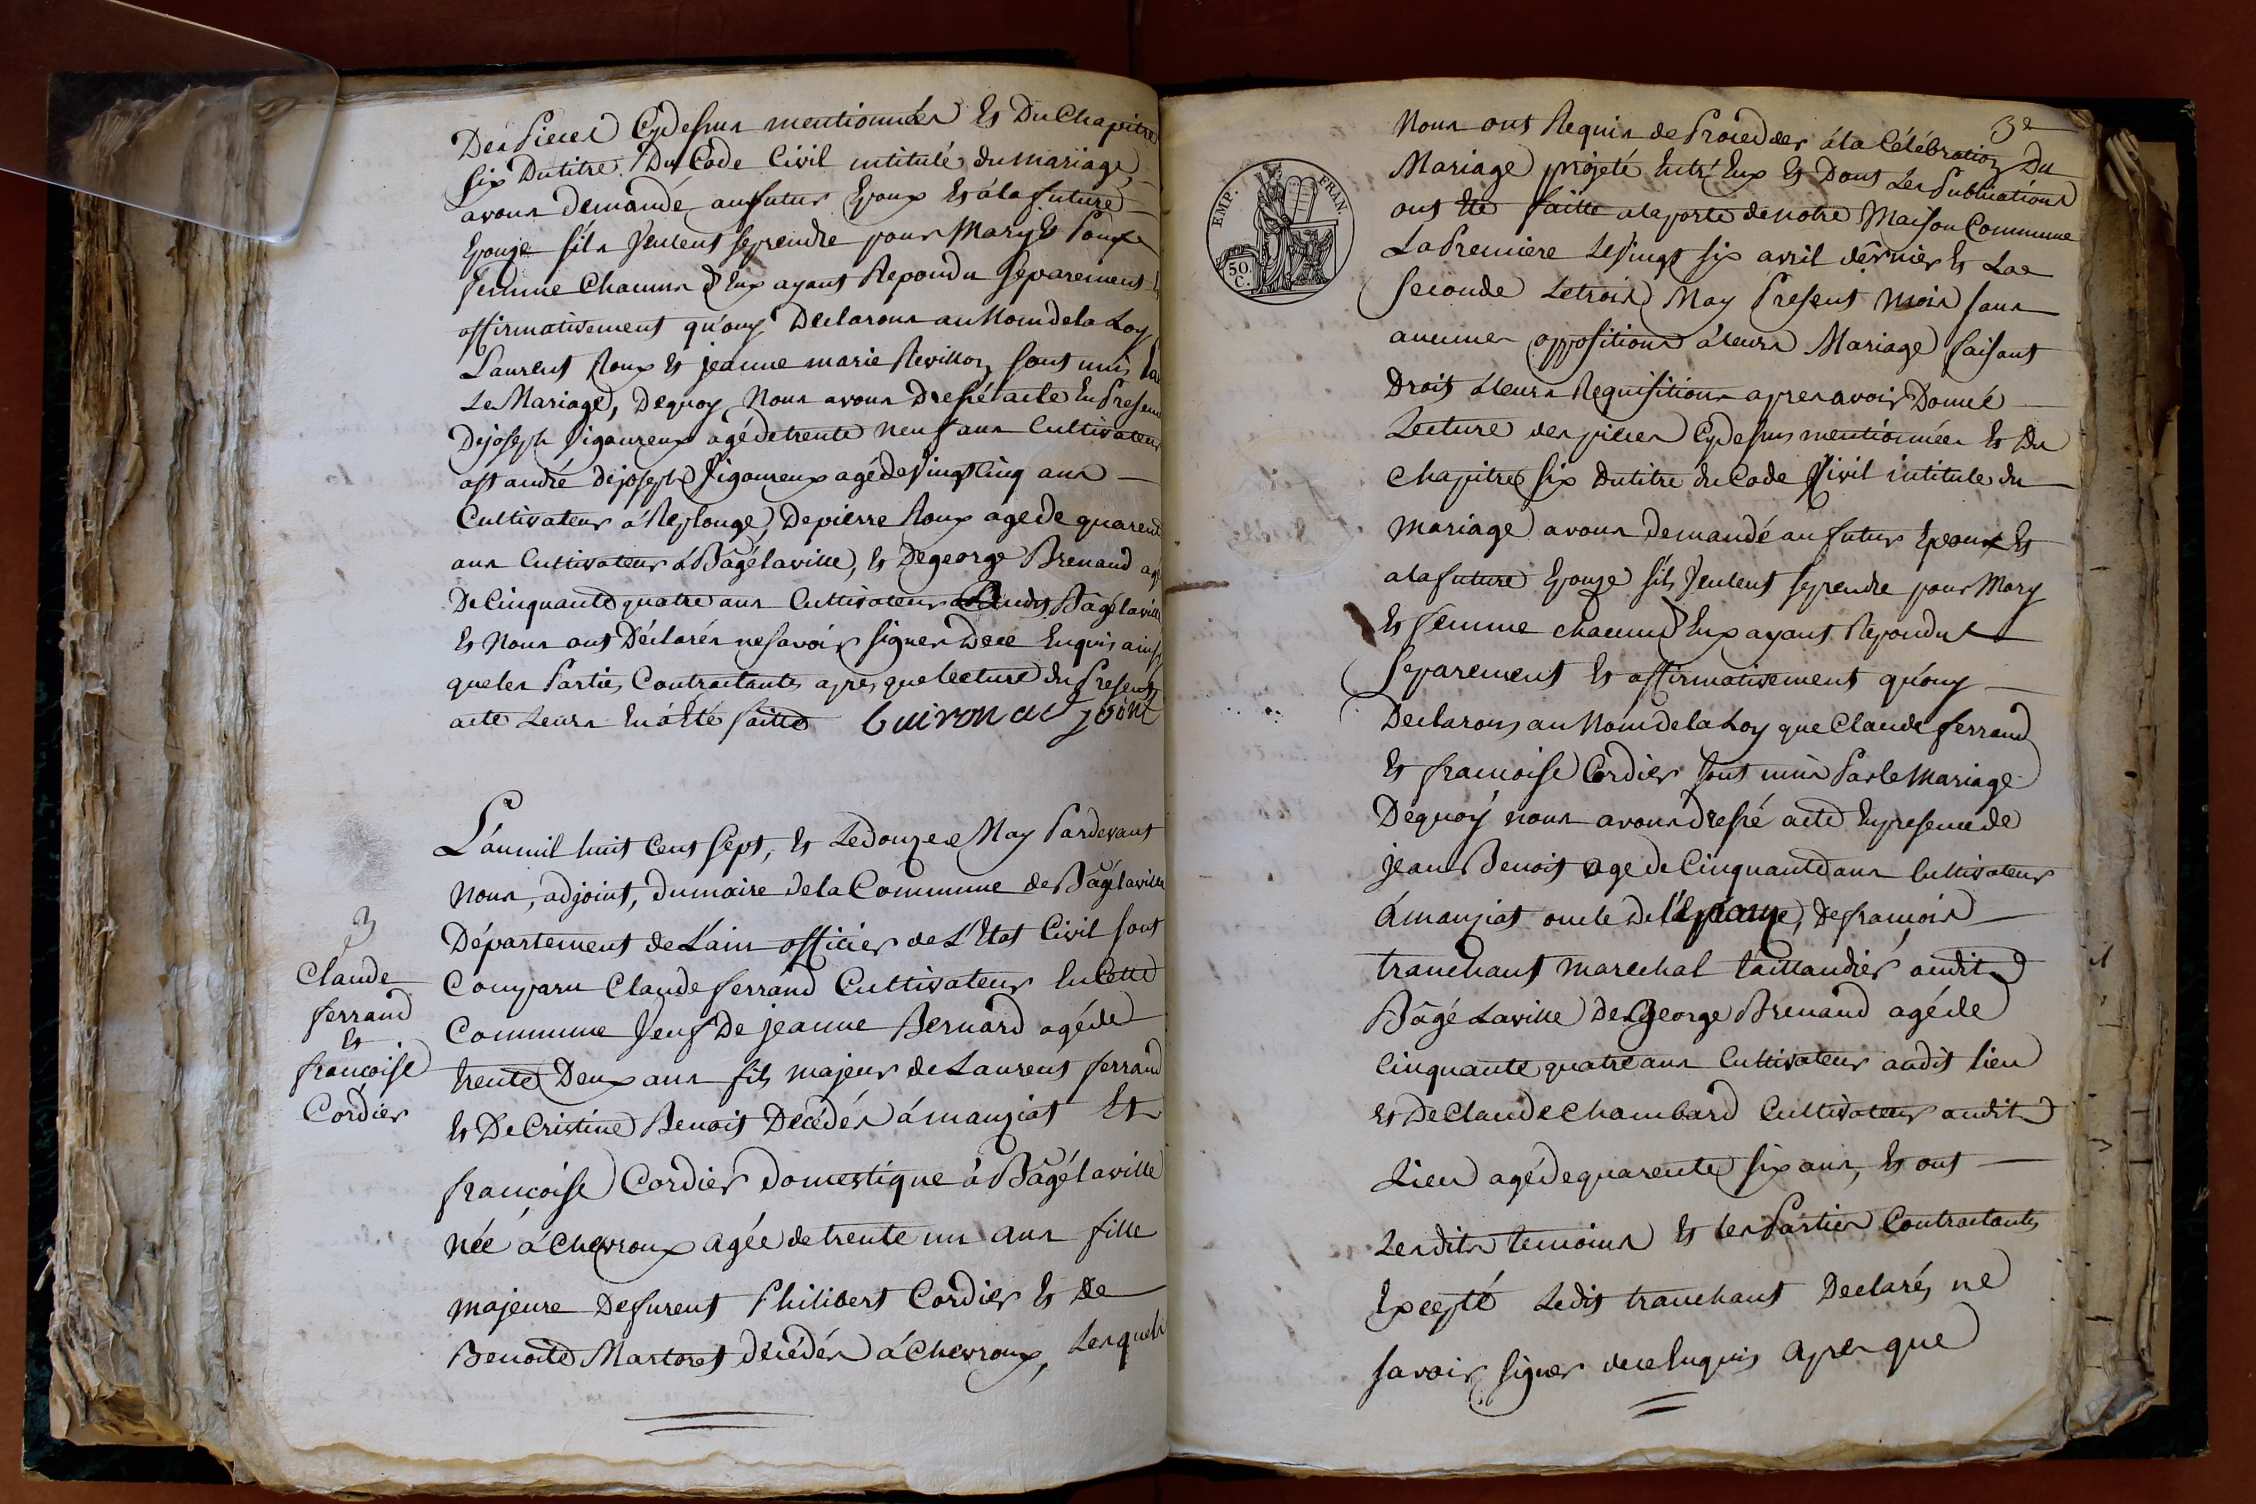 Des Pieces Cydessus mentionnées Et Du Chapitre
Six Du titre Du Code Civil intitulé du mariage,
avons demandé au futur Epoux Et à la future
Epouse s'ils veulent se prendre pour Mary Et Pour
femme Chacun d'Eux ayant Repondu séparement Et
affirmativement qu'ouy Declarons au Nom de la Loy
Laurent Roux Et jeanne marie Revillon sont unis
Le Mariage, De quoy Nous avons Dressé acte En Presen
De joseph Vigoureux agé de trente Neuf ans Cultivateur
à St andré De joseph Vigoureux agé de Vingt Cinq ans
Cultivateur à Replonge, De pierre Roux age de quarente
ans Cultivateur à Bâgé laville, Et De george Brenaud agé
De Cinquante quatre ans Cultivateur audit Bâgé laville
Et Nous ont Déclarés ne savoir signer De ce Enquis ainsy
que les Parties Contractantes après que lecture du Present
acte Leurs En à Eté faitte Guivon adjoint
L'an mil huit Cent Sept, Et Le douze May Pardevant
Nous, adjoint, du maire de la Commune de Bâgé laville
Département de L'ain officier de L'Etat Civil sont
Comparu Claude ferrand Cultivateur En Cette
Commune Veuf De jeanne Bernard agé de
trente Deux ans fils majeur de Laurent ferrand
Et De Cristine Benoit Décédés à manziat Et
françoise Cordier Domestique à Bâgé laville
Née à Chevroux agée de trente un ans fille
majeure De furent Philibert Cordier Et De
Benoite Martoret décédés à Chevroux, Lesquels
3
Claude
ferrand
Et
françoise
Cordier
3e
EMP. FRAN.
50. C.
Nous ont Requis de Procedder à la Célébration Du
Mariage projeté Entr'Eux Et Dont Les Publications
ont Eté faitte a la porte de notre Maison Commune
La Premiere Le Vingt six avril dernier Et La
Seconde Le trois May Present mois sans
aucunes oppositions à leurs Mariage faisant
Droit à leurs Requisitions apres avoir Donné
Lecture des pieces Cydessus mentionnées Et Du
Chapitre Six Du titre du Code Civil intitule du
mariage avons demandé au futur Epoux Et
a la future Epouse s'ils Veulent se prendre pour Mary
Et femme chacun d'Eux ayant Repondu
Separement Et affirmativement qu'ouy
Declarons au Nom de la Loy que Claude ferrand
Et francoise Cordier sont unis Par le Mariage
De quoy nous avons dressé acte En presence de
jean Benoit age de Cinquante ans Cultivateur
à manziat oncle de l'Epouze, De francois
tranchant marechal taillandier audit
Bâgé Laville De george Brenaud agé de
Cinquante quatre ans Cultivateur audit lieu
Et De Claude Chambard Cultivateur audit
Lieu agé de quarente six ans, Et ont
Lesdits temoins Et les Parties Contractantes
Excepté Ledit tranchant Declarés ne
savoir signer de ce Enquis apres que